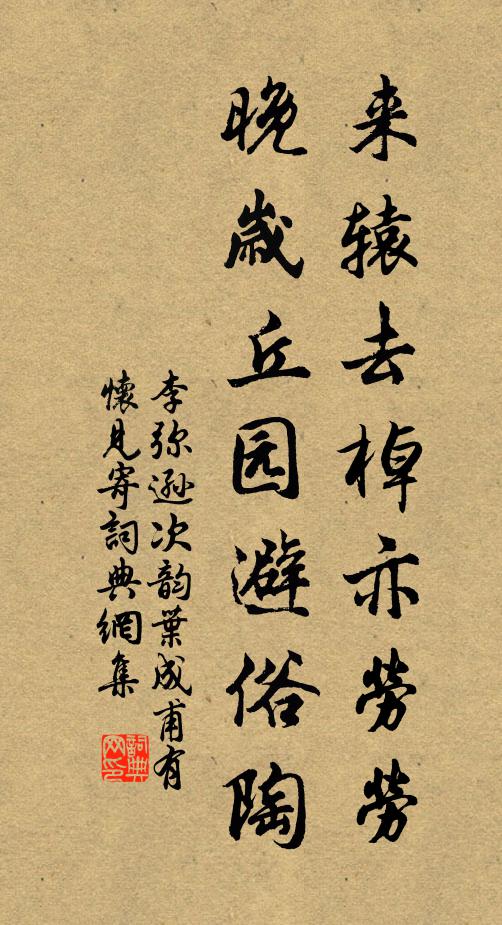 来辕去棹亦劳劳
晚岁丘园避俗陶
李弥逊次韵葉成甫有
懷見寄詞典網集
詞典
网印